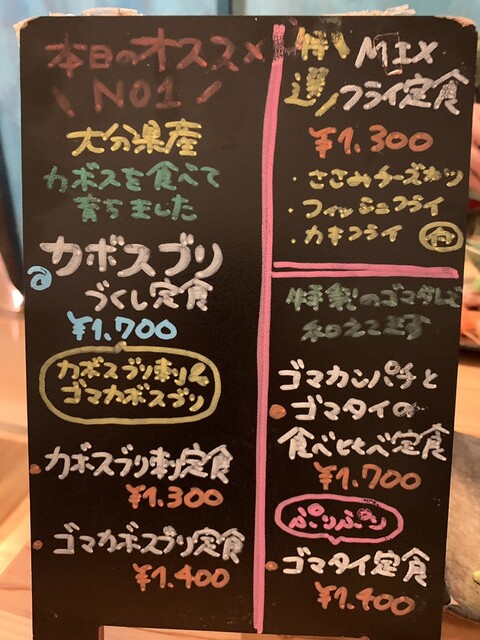 本日のオススメ
\ NO1 /
大分県産
カボスを食べて
育ちました
カボスブリ
づくし定食
¥1.700
カボスブリ刺し&
ゴマカボスブリ
カボスブリ刺定食
¥1.300
ゴマカボスブリ定食
¥1.400
特選
MIX
フライ定食
¥1.300
・ささみチーズカツ
・フィッシュフライ
・カキフライ
特製のゴマダレで
和えてます
ゴマカンパチと
ゴマタイの
食べとべ定食
¥1.700
ぷりぷり
ゴマタイ定食
¥1.400